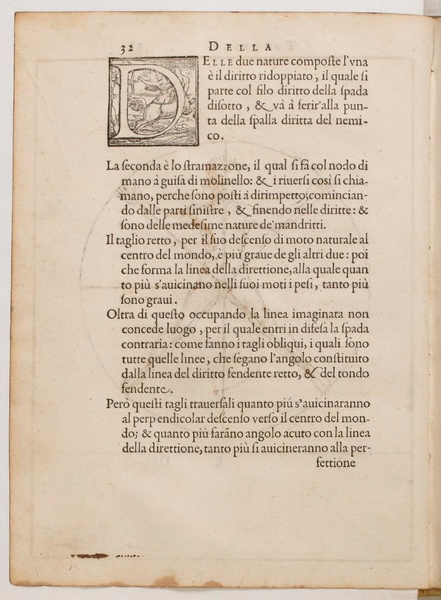 32 DELLA
DELLE due nature composte l'vna
è il diritto ridoppiato, il quale si
parte col filo diritto della spada
disotto, & và à ferir'alla pun-
ta della spalla diritta del nemi-
co.
La seconda è lo stramazzone, il qual si fà col nodo di
mano à guisa di molinello: & i riuersi cosi si chia-
mano, perche sono posti à dirimpetto; comincian-
do dalle parti sinistre, & finendo nelle diritte: &
sono delle medesime nature de' mandritti.
Il taglio retto, per il suo descenso di moto naturale al
centro del mondo, è piu graue de gli altri due: poi
che forma la linea della direttione, alla quale quan
to più s'auicinano nelli suoi moti i pesi, tanto più
sono graui.
Oltra di questo occupando la linea imaginata non
concede luogo, per il quale entri in difesa la spada
contraria: come fanno i tagli obliqui, i quali sono
tutte quelle linee, che segano l'angolo constituito
dalla linea del diritto fendente retto, & del tondo
fendente.
Però questi tagli trauersali quanto piú s'auicinaranno
al perpendicolar descenso verso il centro del mon-
do; & quanto più farãno angolo acuto con la linea
della direttione, tanto più si auicineranno alla per-
fettione